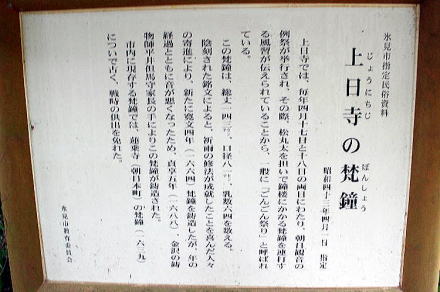 氷見市指定民俗資料
じょうにちじ ぼんしょう
上日寺の梵鐘
昭和四十三年四月一日 指定
上日寺では、毎年四月十七日と十八日の両日にわたり、朝日観音の
例祭が挙行され、その際、松丸太を担いで鐘楼にかかる梵鐘を連打す
る風習が伝えられていることから、一般に「ごんごん祭り」と呼ばれ
ている。
この梵鐘は、総丈一四二㌢、口径八一㌢、乳数六四を数える。
陰刻された銘文によると、祈雨の修法が成就したことを喜んだ人々
の寄進により、新たに寛文四年(一六六四)梵鐘を鋳造したが、年の
経過とともに音が悪くなったため、貞享五年(一六八八)、金沢の鋳
物師平井但馬守家長の手によりこの梵鐘が鋳造された。
市内に現存する梵鐘では、蓮乗寺(朝日本町)の梵鐘(一六三九)
について古く、戦時の供出を免れた。
氷見市教育委員会